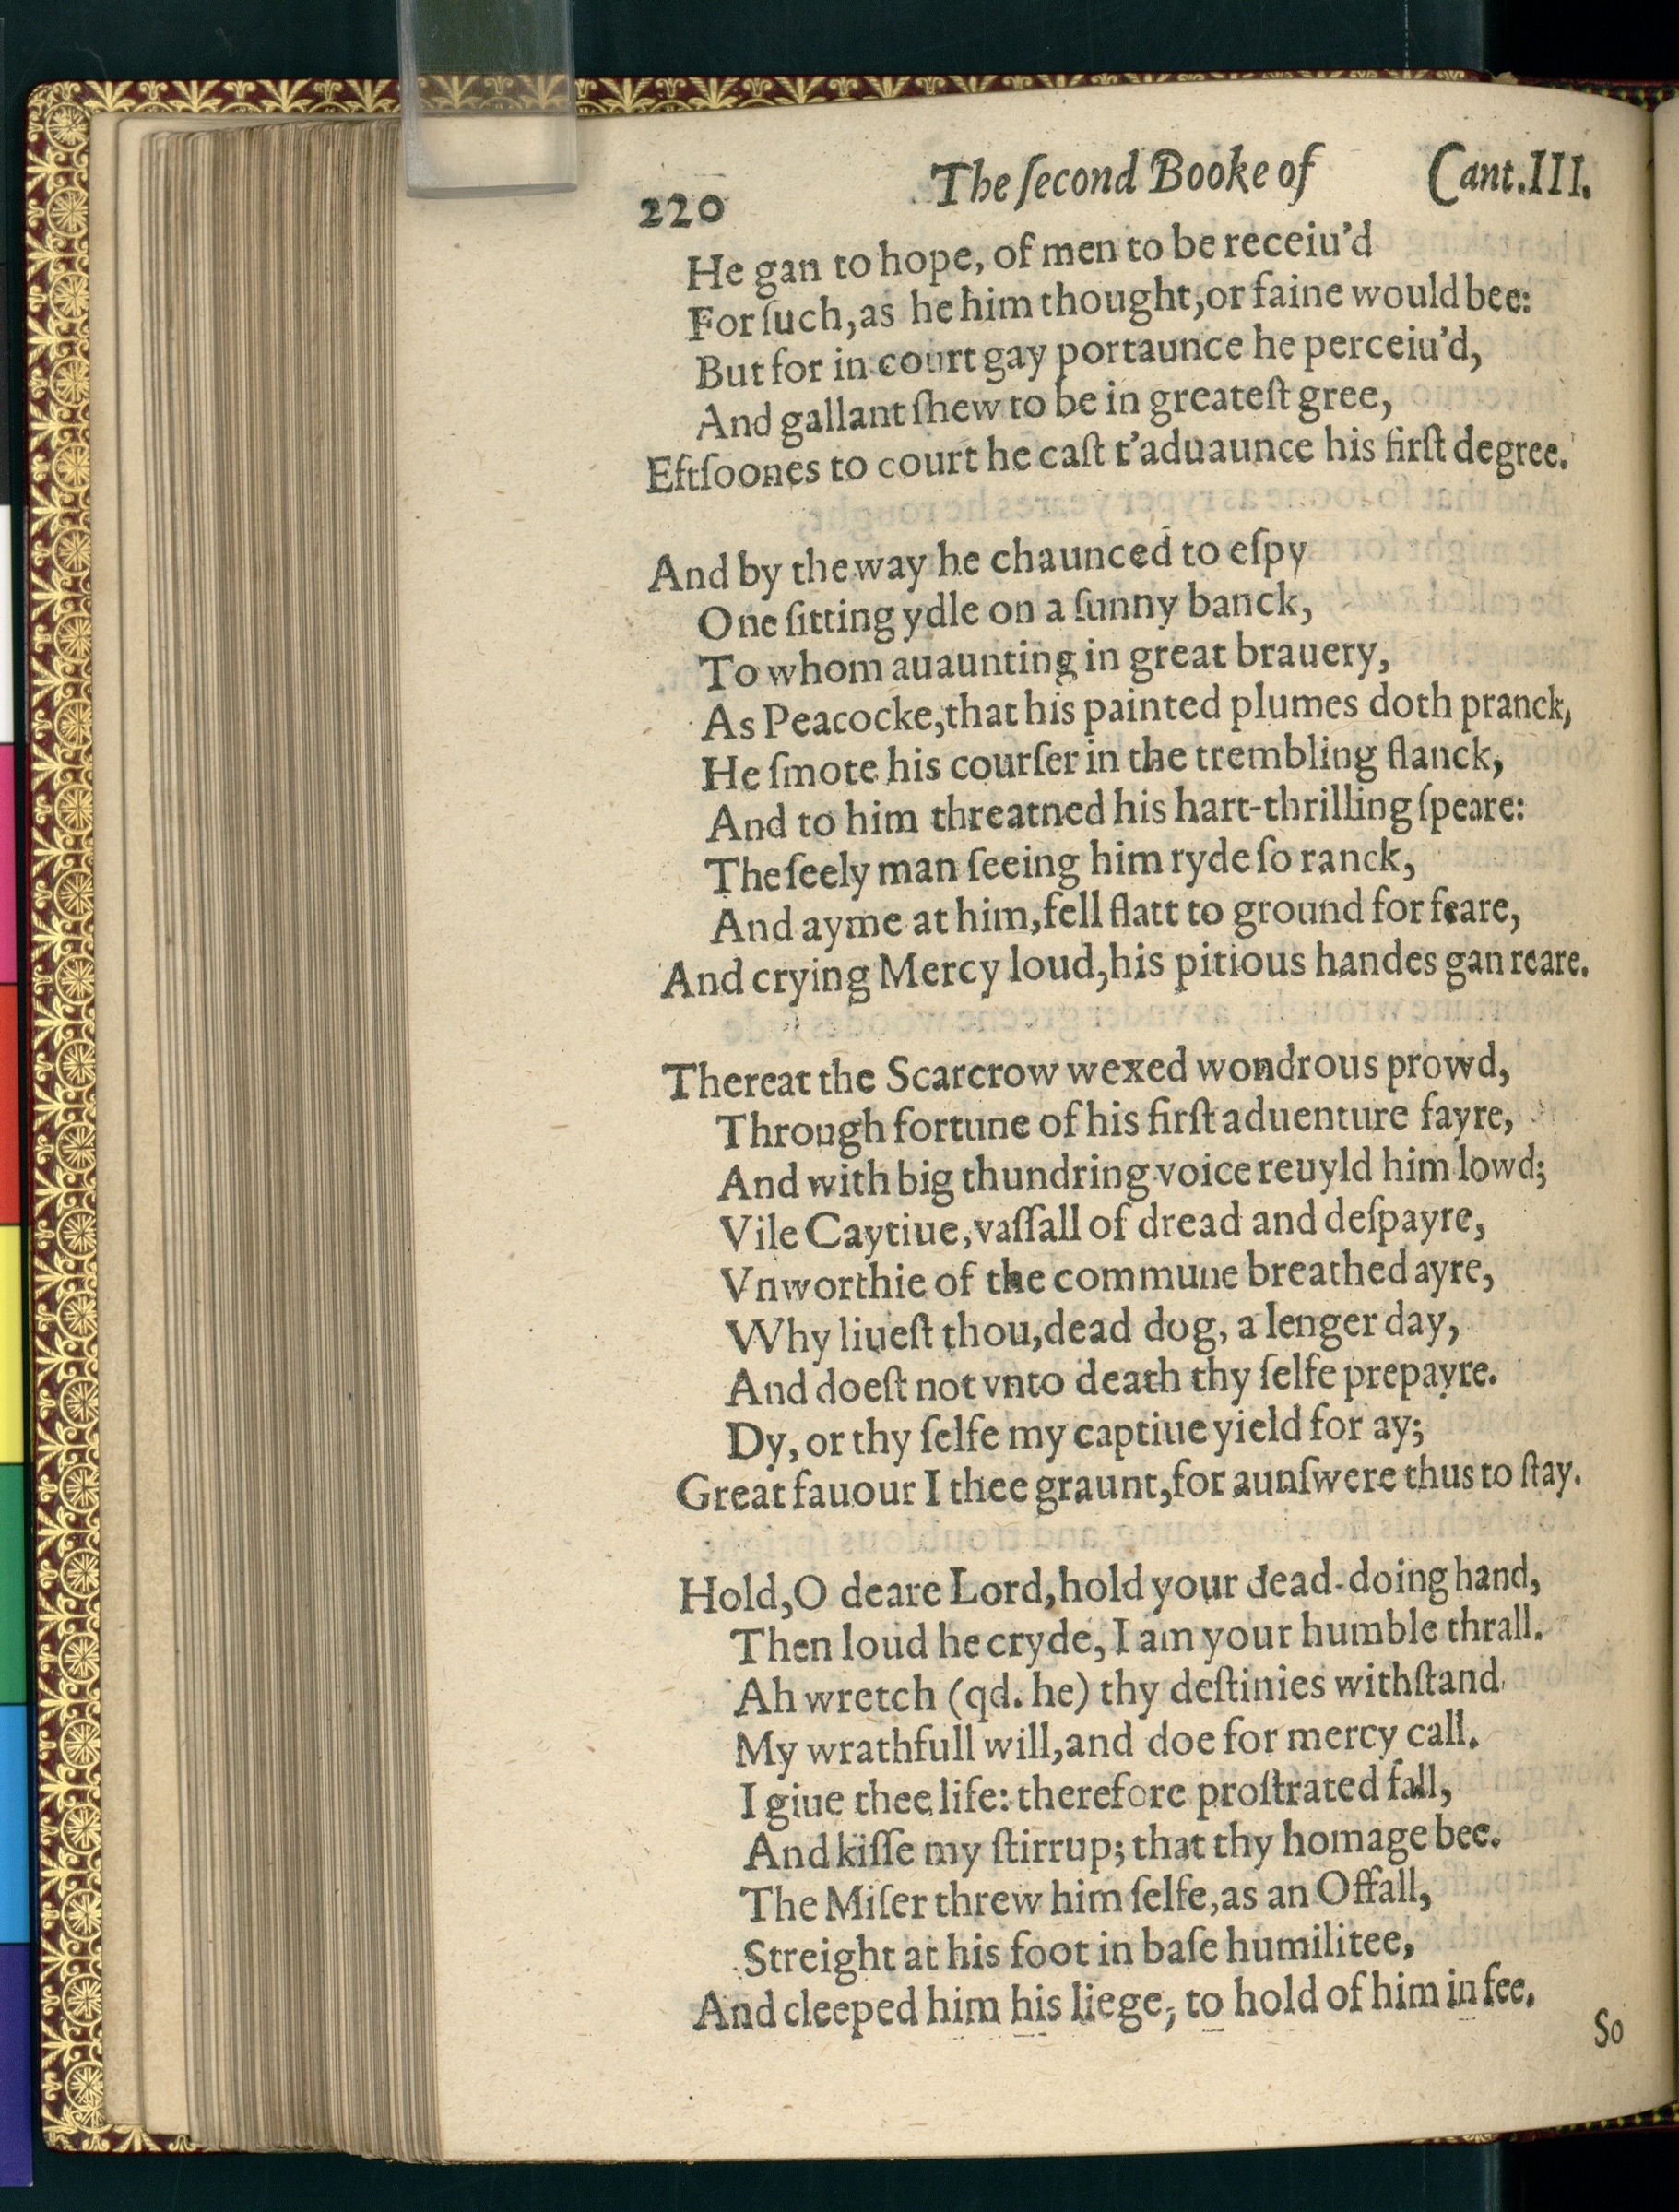 220 The ſecond Booke of Cant.III.
He gan to hope, of men to be receiu'd
For ſuch, as he him thought, or faine would bee:
But for in court gay portaunce he perceiu'd,
And gallant ſhew to be in greateſt gree,
Eftſoones to court he caſt t'aduaunce his firſt degree.
And by the way he chaunced to eſpy
One ſitting ydle on a ſunny banck,
To whom auaunting in great brauery,
As Peacocke, that his painted plumes doth pranck,
He ſmote his courſer in the trembling flanck,
And to him threatned his hart-thrilling ſpeare:
The ſeely man ſeeing him ryde ſo ranck,
And ayme at him, fell flatt to ground for feare,
And crying Mercy loud, his pitious handes gan reare.
Thereat the Scarcrow wexed wondrous prowd,
Through fortune of his firſt aduenture fayre,
And with big thundring voice reuyld him lowd;
Vile Caytiue, vaſſall of dread and deſpayre,
Vnworthie of the commune breathed ayre,
Why liueſt thou, dead dog, a lenger day,
And doeſt not vnto death thy ſelfe prepayre.
Dy, or thy ſelfe my captiue yield for ay;
Great fauour I thee graunt, for aunſwere thus to ſtay.
Hold, O deare Lord, hold your dead-doing hand,
Then loud he cryde, I am your humble thrall.
Ah wretch (qd. he) thy deſtinies withſtand
My wrathfull will, and doe for mercy call.
I giue thee life: therefore proſtrated fall,
And kiſſe my ſtirrup; that thy homage bee.
The Miſer threw him ſelfe, as an Offall,
Streight at his foot in baſe humilitee,
And cleeped him his liege, to hold of him in fee.
So